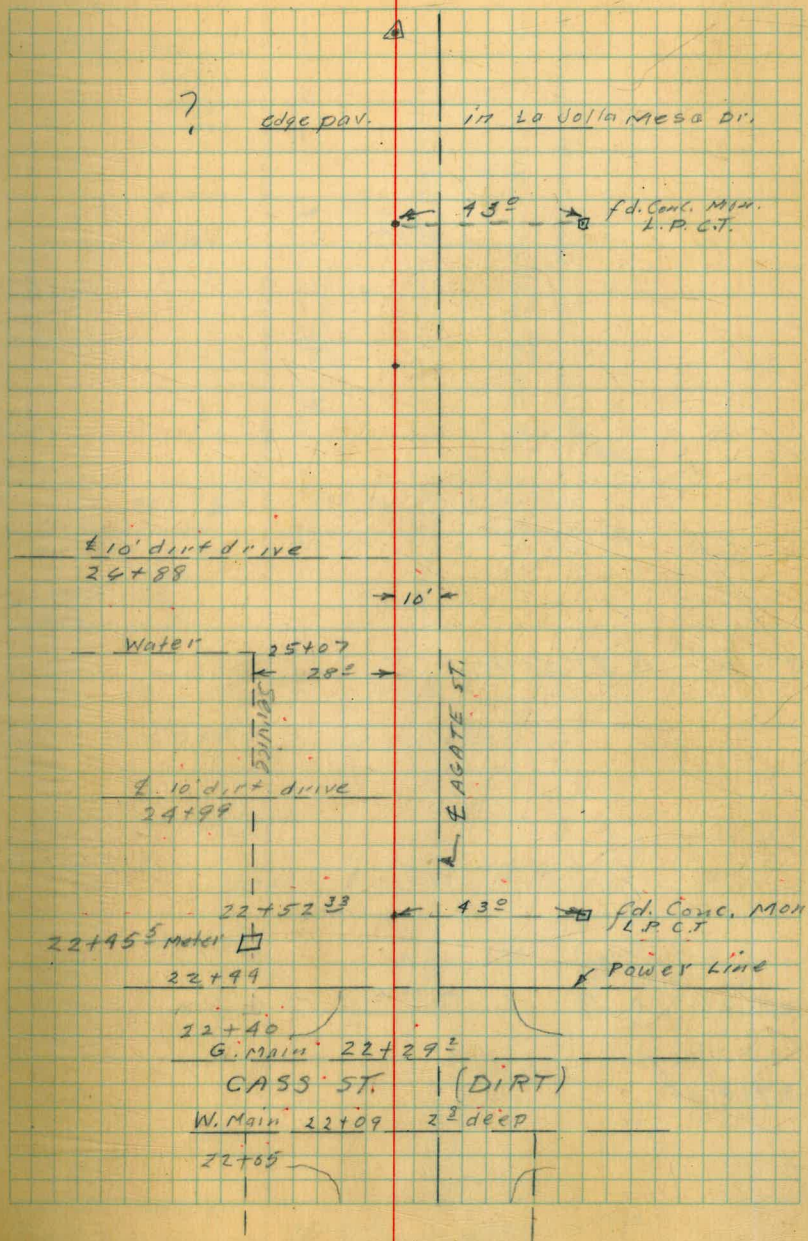 ?
edge pav. in La Jolla Mesa Dr.
43⁰ fd. Conc. Mon.
L.P.C.T.
℄ 10' dirt drive
26+88
10'
Water 25+07
28⁰
Service
℄ AGATE ST.
℄ 10' dirt drive
24+99
22+52³³ 43⁰ fd. Conc. Mon
L.P.C.T
22+45⁵ Meter
22+44 Power Line
22+40
G. Main 22+29²
CASS ST. (DIRT)
W. Main 22+09 2³ deep
22+05